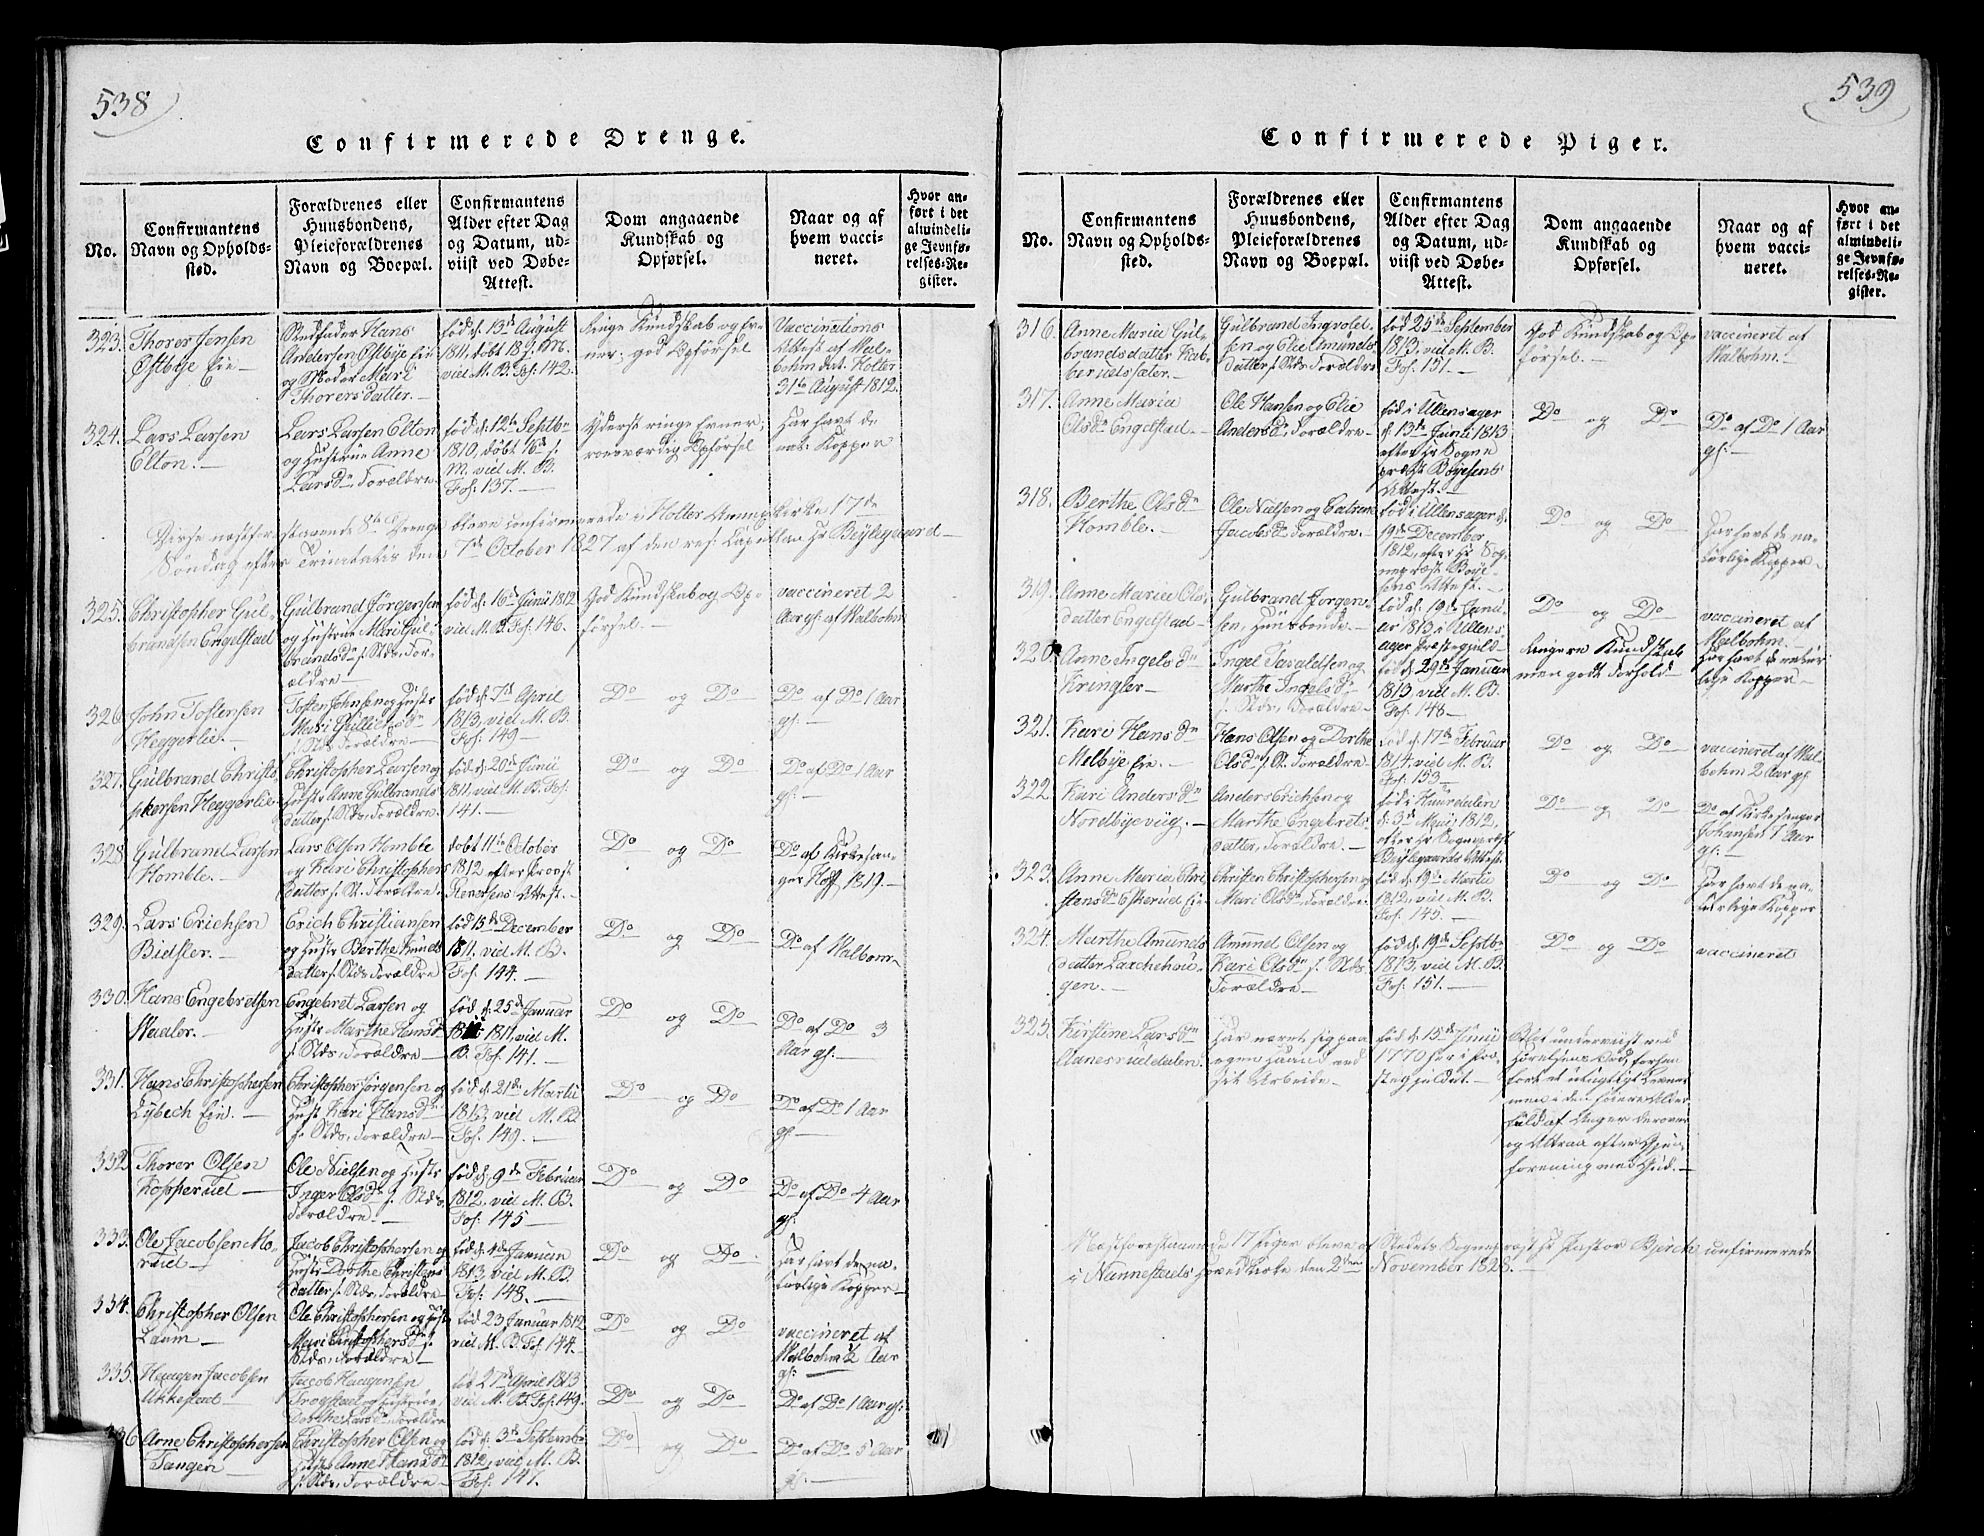 538
Confirmerede Drenge.
No.
Confirmantens
Navn og Opholds-
sted.
Forældrenes eller
Huusbondens,
Pleieforældrenes
Navn og Boepæl.
Confirmantens
Alder efter Dag
og Datum, ud-
viist ved Døbe-
Attest.
Dom angaaende
Kundskab og
Opførsel.
Naar og af
hvem vacci-
neret.
Hvor an-
ført i det
almindeli-
ge Jevnfø-
relses-Re-
gister.
323. Thorer Jensen
Østbye Eie
Stedfader Hans
Andersen Østbye Eie
og Moder Mari
Thorersdatter.
fød d. 13de August
1811, døbt 18 s. M.
viid M. B. Fol: 142.
Ringe Kundskab og Ev-
ner; god Opførsel
Vaccinations
Attest af Mal-
bohm dat. Holter
31te August 1812.
324. Lars Larsen
Elton.
Lars Larsen Elton
og Hustrue Anne
Larsdr Forældre
fød d. 12te Septbr
1810, døbt 16d s.
M, viid M. B.
Fol: 137.
Yderst ringe Evner,
roesværdig Opførsel
Har havt de
nat: Kopper
Disse næstforestaaende 8te Drenge bleve confirmerede i Holter Annexkirke 17de
Søndag efter Trinitatis den 7de October 1827 af den res: Capellan Hr Beylegaard
325. Christopher Gul-
brandsen Engelstad
Gulbrand Jørgensen
og Hustrue Mari Gul-
brandsdr s. Stds, For-
ældre
fød d. 16d Junii 1812
viid M. B. Fol: 146.
God Kundskab og Op-
førsel.
vaccineret 2
Aar gl. af Malbohm
326. John Tostensen
Heggerlie.
Tosten Johnsen og Hustr
Mari Gulliksdr
s. Stds Forældre
fød d. 7d April
1813, viid M. B.
Fol: 149
Do og Do
Do af Do 1 Aar
gl.
327. Gulbrand Christo-
phersen Heggerlie
Christopher Larsen og
Hustr Anne Gulbrands
datter s. Stds, Forældre
fød d. 20d Junii
1811, viid M. B. Fol:
141.
Do og Do
Do af Do 1 Aar
gl.
328. Gulbrand Larsen
Homble.
Lars Olsen Homble
og Kari Christophers
datter s. St. Forældre
døbt 11te October
1812 efter Provst
Stenersens Attest.
Do og Do
Do af Kirkesan-
ger Hoff 1819.
329. Lars Erichsen
Bidsler.
Erich Christiansen
og Hustr Berthe Knuds
datter s. Stds Forældre
fød 15de December
1811, viid M. B.
Fol: 144.
Do og Do
Do af Malbom
330. Hans Engebretsen
Maaler.
Engebret Larsen og
Hustr Marthe Hansdr
s. Stds, Forældre
fød d. 25d Januar
1811, viid M.
B. Fol: 141.
Do og Do
Do af Do 3
Aar gl.
331. Hans Christophersen
Lybech Eie.
Christopher Jørgensen og
Hust Kari Hansdr
s. Stds, Forældre
fød d. 21de Martii
1813, viid M. B.
Fol: 149.
Do og Do
Do af Do 1 Aar
gl.
332. Thorer Olsen
Kopperud
Ole Nielsen og Hustr
Inger Olsdr s. Stds,
Forældre.
fød d. 9de Februar
1812, viid M. B.
Fol: 145
Do og Do
Do af Do 4 Aar
gl.
333. Ole Jacobsen Mo-
ruud
Jacob Christophersen og
Hustr Dorthe Christens
datter s. Stds, Forældre
fød d. 4de Januar
1813, viid M. B.
Fol: 148.
Do og Do
Har havt de na-
turlige Kopper
334. Christopher Olsen
Laum
Ole Christophersen og Hustr
Mari Christophersdr s.
Stds, Forældre
fød 23 Januar 1812
viid M. B. Fol: 144.
Do og Do
vaccineret af
Malbohm ½ Aar
gl.
335. Haagen Jacobsen
Ukkestad
Jacob Haagensen
Trogstad og Hustrue,
Dorthe Larsdr, Forældre
fød 27de April 1813
viid M. B. Fol: 149.
Do og Do
Do af Do 1 Aar gl.
336 Arne Christophersen
Tangen
Christopher Olsen og
Hustr Anne Hansdr
s. Stds, Forældre
fød d. 3de Septembr
1812, viid M. B.
Fol: 147.
Do og Do
Do af Do 5 Aar
gl.
539
Confirmerede Piger.
No.
Confirmantens
Navn og Opholds-
sted.
Forældrenes eller
Huusbondens,
Pleieforældrenes
Navn og Boepæl.
Confirmantens
Alder efter Dag
og Datum, ud-
viist ved Døbe-
Attest.
Dom angaaende
Kundskab og
Opførsel.
Naar og af
hvem vacci-
neret.
Hvor an-
ført i det
almindeli-
ge Jevnfø-
relses-Re-
gister.
316. Anne Maria Gul-
brandsdatter Kab-
berudsæter.
Gulbrand Ingvold-
sen og Elie Amunds-
datter s. Stds, Forældre
fød 25de September
1813, viid M. B.
Fol: 151.
God Kundskab og Op-
førsel.
vaccineret af
Malbohm.
317. Anne Maria
Olsdr Engelstad
Ole Hansen og Elie
Andersdr, Forældre
fød i Ullensager
d. 13de Junii 1813
efter Hr Sogne
præst Boyesens
Attest.
Do og Do
Do af Do 1 Aar
gl.
318. Berthe Olsdr
Homble.
Ole Nielsen og Catrine
Jacobsdr Forældre.
fød i Ullensager d.
19de December
1812, efter Hr Sog-
nepræst Boye-
sens Attest.
Do og Do
Har havt de na-
turlige Kopper
319. Anne Maria Ols-
datter Engelstad
Gulbrand Jørgen-
sen, Huusbonde.
fød d. 19de Janu-
ar 1813 i Ullens-
ager Præstegjeld
Do og Do
vaccineret af
Malbohm.
320. Anne Ingelsdr
Kringler
Ingel Tavaldsen og
Marthe Ingelsdr
s. Stds, Forældre
fød d. 29de Januar
1813, viid M. B.
Fol: 148
Ringere Kundskab
men godt Forhold
Har havt de natur
lige Kopper
321. Kari Hansdr
Melbye Eie.
Hans Olsen og Dorthe
Olsdr s. St. Forældre
fød d. 17de Februar
1814, viid M. B.
Fol: 153
Do og Do
vaccineret af Mal-
bohm 2 Aar gl.
322 Kari Andersdr
Nordbyeviig.
Anders Erichsen og
Marthe Engebrets
datter, Forældre.
fød i Huurdalen
d. 3de Maij 1812,
efter Hr Sognepræst
Beylegaards Attest.
Do og Do
Do af Kirkesanger
Johansen 1 Aar
gl.
323. Anne Maria Chri-
stensdr Eskerud Eie
Christen Christophersen og
Mari Olsdr, Forældre
fød d. 19de Martii
1812, viid M. B.
Fol: 145.
Do og Do
Har havt de na-
turlige Kopper
324. Marthe Amunds
datter Larchehou-
gen.
Amund Olsen og
Kari Olsdr s. Stds.
Forældre
fød d. 19de Septbr
1813, viid M. B.
Fol: 151.
Do og Do
vaccineret
325. Kirstine Larsdr
Aanesruddalen
Har næret sig paa
egen Haand ved
sit Arbeide.
fød d. 15de Junii
1770 her i Præ-
stegjeldet.
Blot underviist ved
Hørelsens Bød forhen
ført et utugtigt Levnet
men i den seiere Alder
fuld af Anger derover
og Attraa efter Gjen-
forening med Gud.
Næstforestaaende 17 Piger bleve af Stedets Sognepræst Hr Pastor Bjerk confirmerede
i Nannestads Hovedkirke den 2den November 1828.